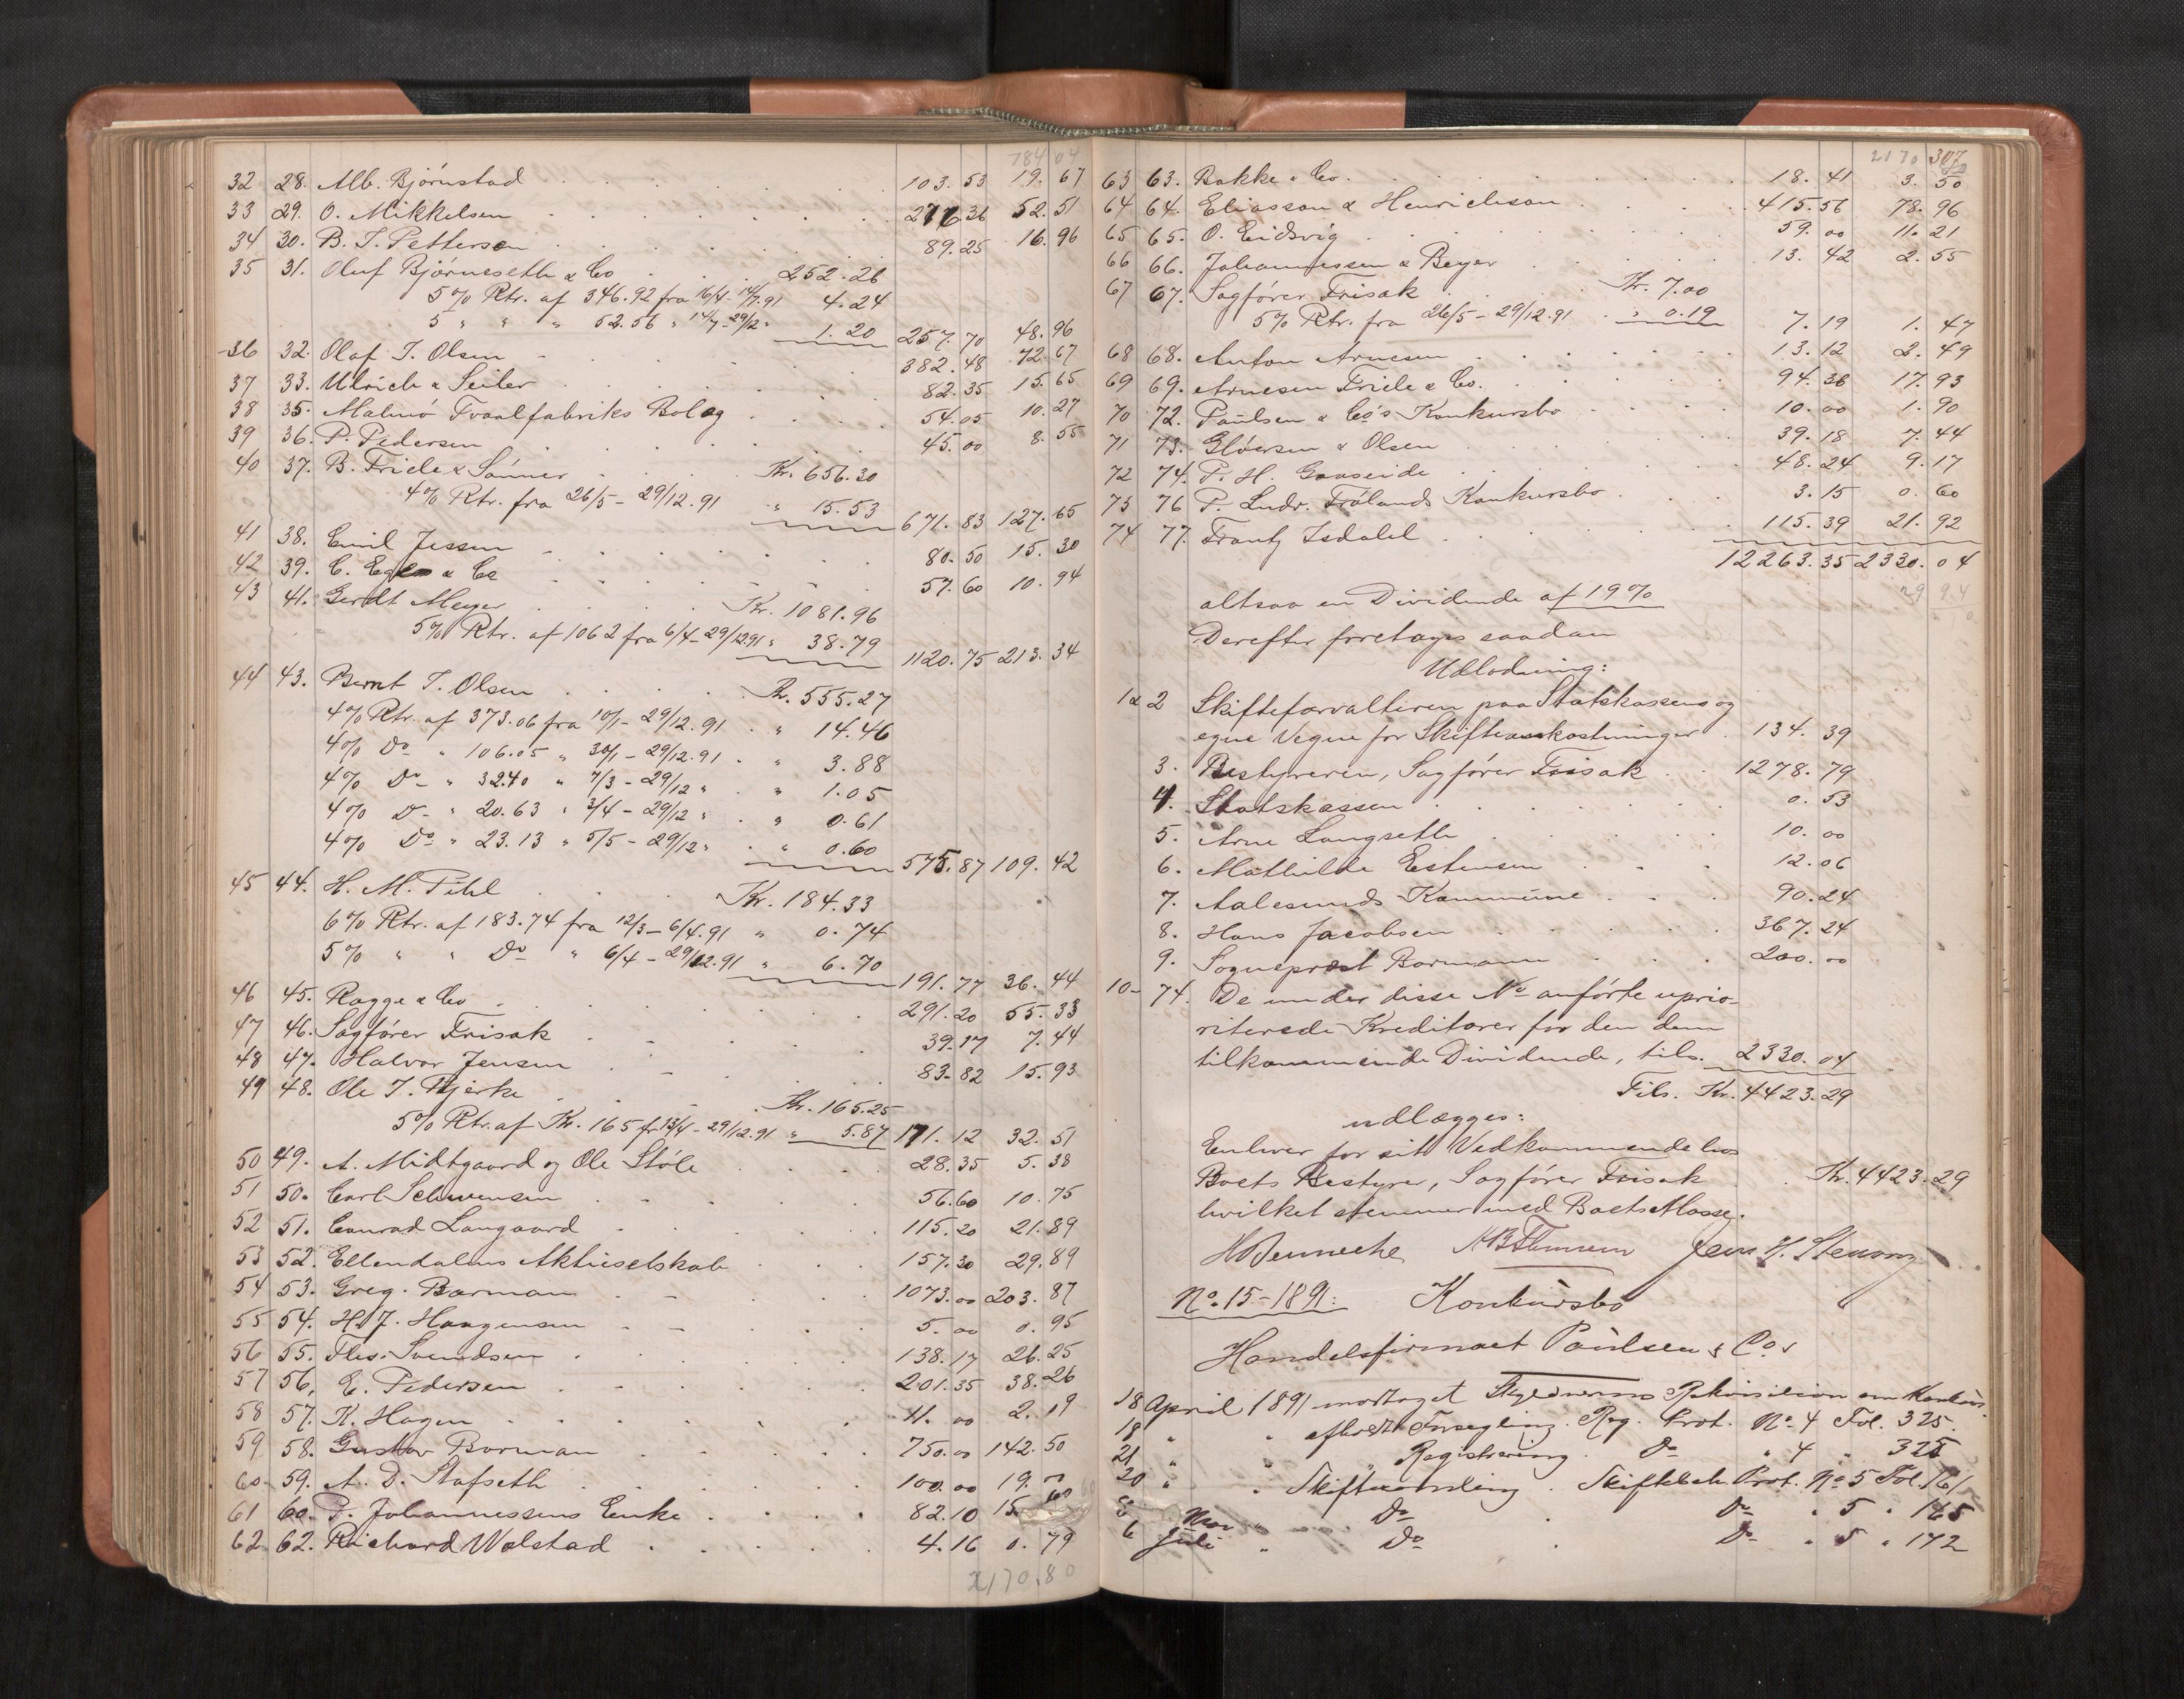 784 04
32 28. Alb. Bjørnstad 103. 53 19. 67
33 29. O. Mikkelsen 276 36 52. 51
34 30. B. J. Petterson 89. 25 16. 96
35 31. Oluf Bjørneseth & Co 252. 26
5% Rtr. af 346. 92 fra 16/4 - 14/7 91 4. 24
5 " " " 52. 56 " 14/7 - 29/12 " 1. 20 257. 70 48. 96
36 32. Olaf J. Olsen 382. 48 72. 67
37 33. Ulrich & Seiler 82. 35 15. 65
38 35. Malmö Tvaalfabriks Bolag 54. 05 10. 27
39 36. P. Pedersen 45. 00 8. 55
40 37. B. Friele & Sønner Kr. 656. 30
4% Rtr. fra 26/5 - 29/12. 91 " 15. 53 671. 83 127. 65
41 38. Emil Jessen 80. 50 15. 30
42 39. C. & Co 57. 60 10. 94
43 41. Gerdt Meyer Kr. 1081. 96
5% Rtr. af 1062 fra 6/4 - 29/12 91 " 38. 79 1120. 75 213. 34
44 43. Bernt J. Olsen Kr. 555. 27
4% Rtr. af 373. 06 fra 10/1 - 29/12. 91 " 14. 46
4% Do " 106. 05 " 30/1 - 29/12. 91 " 3. 88
4% Do " 32. 40 " 7/3 - 29/12 " " 1. 05
4% Do " 20. 63 " 3/4 - 29/12 " " 0. 61
4% Do " 23. 13 " 5/5 - 29/12 " " 0. 60 575. 87 109. 42
45 44. H. M. Pihl Kr. 184. 33
6% Rtr. af 183. 74 fra 12/3 - 6/4. 91 " 0. 74
5% " " Do " 6/4 - 29/12. 91 " 6. 70 191. 77 36. 44
46 45. Rogge & Co 291. 20 55. 33
47 46. Sagfører Frisak 39. 17 7. 44
48 47. Halvor Jensen 83. 82 15. 93
49 48. Ole J. Bjerke Kr. 165. 25
5% Rtr. af Kr. 165 fr 15/4 - 29/12. 91 " 5. 87 171. 12 32. 51
50 49. A. Midtgaard og Ole Støle 28. 35 5. 38
51 50. Carl Schwensen 56. 60 10. 75
52 51. Conrad Langaard 115. 20 21. 89
53 52. Ellendalens Aktieselskab 157. 30 29. 89
54 53. Greg. Borman 1073. 00 203. 87
55 54. H. J. Haagensen 5. 00 0. 95
56 55. Thes. Svendsen 138. 17 26. 25
57 56. E. Pedersen 201. 35 38. 26
58 57. K. Hagen 11. 00 2. 19
59 58. Gustav Borman 750. 00 142. 50
60 59. A. D. Stafseth 100. 00 19. 00
61 60. P. Johannessens Enke 82. 10 15. 60
62 62. Richard Wolstad 4. 16 0. 79
2170. 80
2170 80
307
63 63. Bakke & Co. 18. 41 3. 50
64 64. Eliasson & Henrichson 415. 56 78. 96
65 65. O. Eidsvig 59. 00 11. 21
66 66. Johannessen & Beyer 13. 42 2. 55
67 67. Sagfører Frisak Kr. 7. 00
5% Rtr. fra 26/5 - 29/12. 91 " 0. 19 7. 19 1. 47
68 68. Anton Arnesen 13. 12 2. 49
69 69. Arnesen Friele & Co. 94. 36 17. 93
70 72. Paulsen & Co's Konkursbo 10. 00 1. 90
71 73. Gløersen & Olsen 39. 18 7. 44
72 74. P. H. Gaaseide 48. 24 9. 17
73 76 P. Ludv. Frølands Konkursbo 3. 15 0. 60
74 77. Frantz Isdahl 115. 39 21. 92
12263. 35 2330. 04
altsaa en Dividende af 19%
Derefter foretages saadan
Udlodning:
1 & 2 Skifteforvalteren paa Statskassens og
egne Vegne for Skifteomkostninger 134. 39
3. Bestyreren, Sagfører Frisak 1278. 79
4. Statskassen 0. 53
5. Arne Langseth 10. 00
6. Mathilde Estensen 12. 06
7. Aalesunds Kommune 90. 24
8. Hans Jacobsen 367. 24
9. Sogneprest Barmann 200. 00
10 - 74. De under disse No anførte uprio-
riterede Kreditorer for den dem
tilkommende Dividende, tils. 2330. 04
Tils. Kr. 4423. 29
udlægges:
Enhver for sit Vedkommende hos
Boets Bestyrer, Sagfører Frisak Kr. 4423. 29
hvilket stemmer med Boets Masse.
Jens H. Stensvig
No. 15 - 1891: Konkursbo
Handelsfirmaet Paulsen & Co.
18 April 1891 modtaget Skyldnernes Rekvisition om Konkurs.
18 " " afholdt Forsegling. Reg. Prot. No. 4 Fol. 325.
21 " " " Registrering. Do " 4 " 325
20 " " Skiftesamling. Skiftebeh. Prot. No 5 Fol. 161
8 Mai " Do Do " 5 " 165
6 Juli " Do Do " 5 " 172